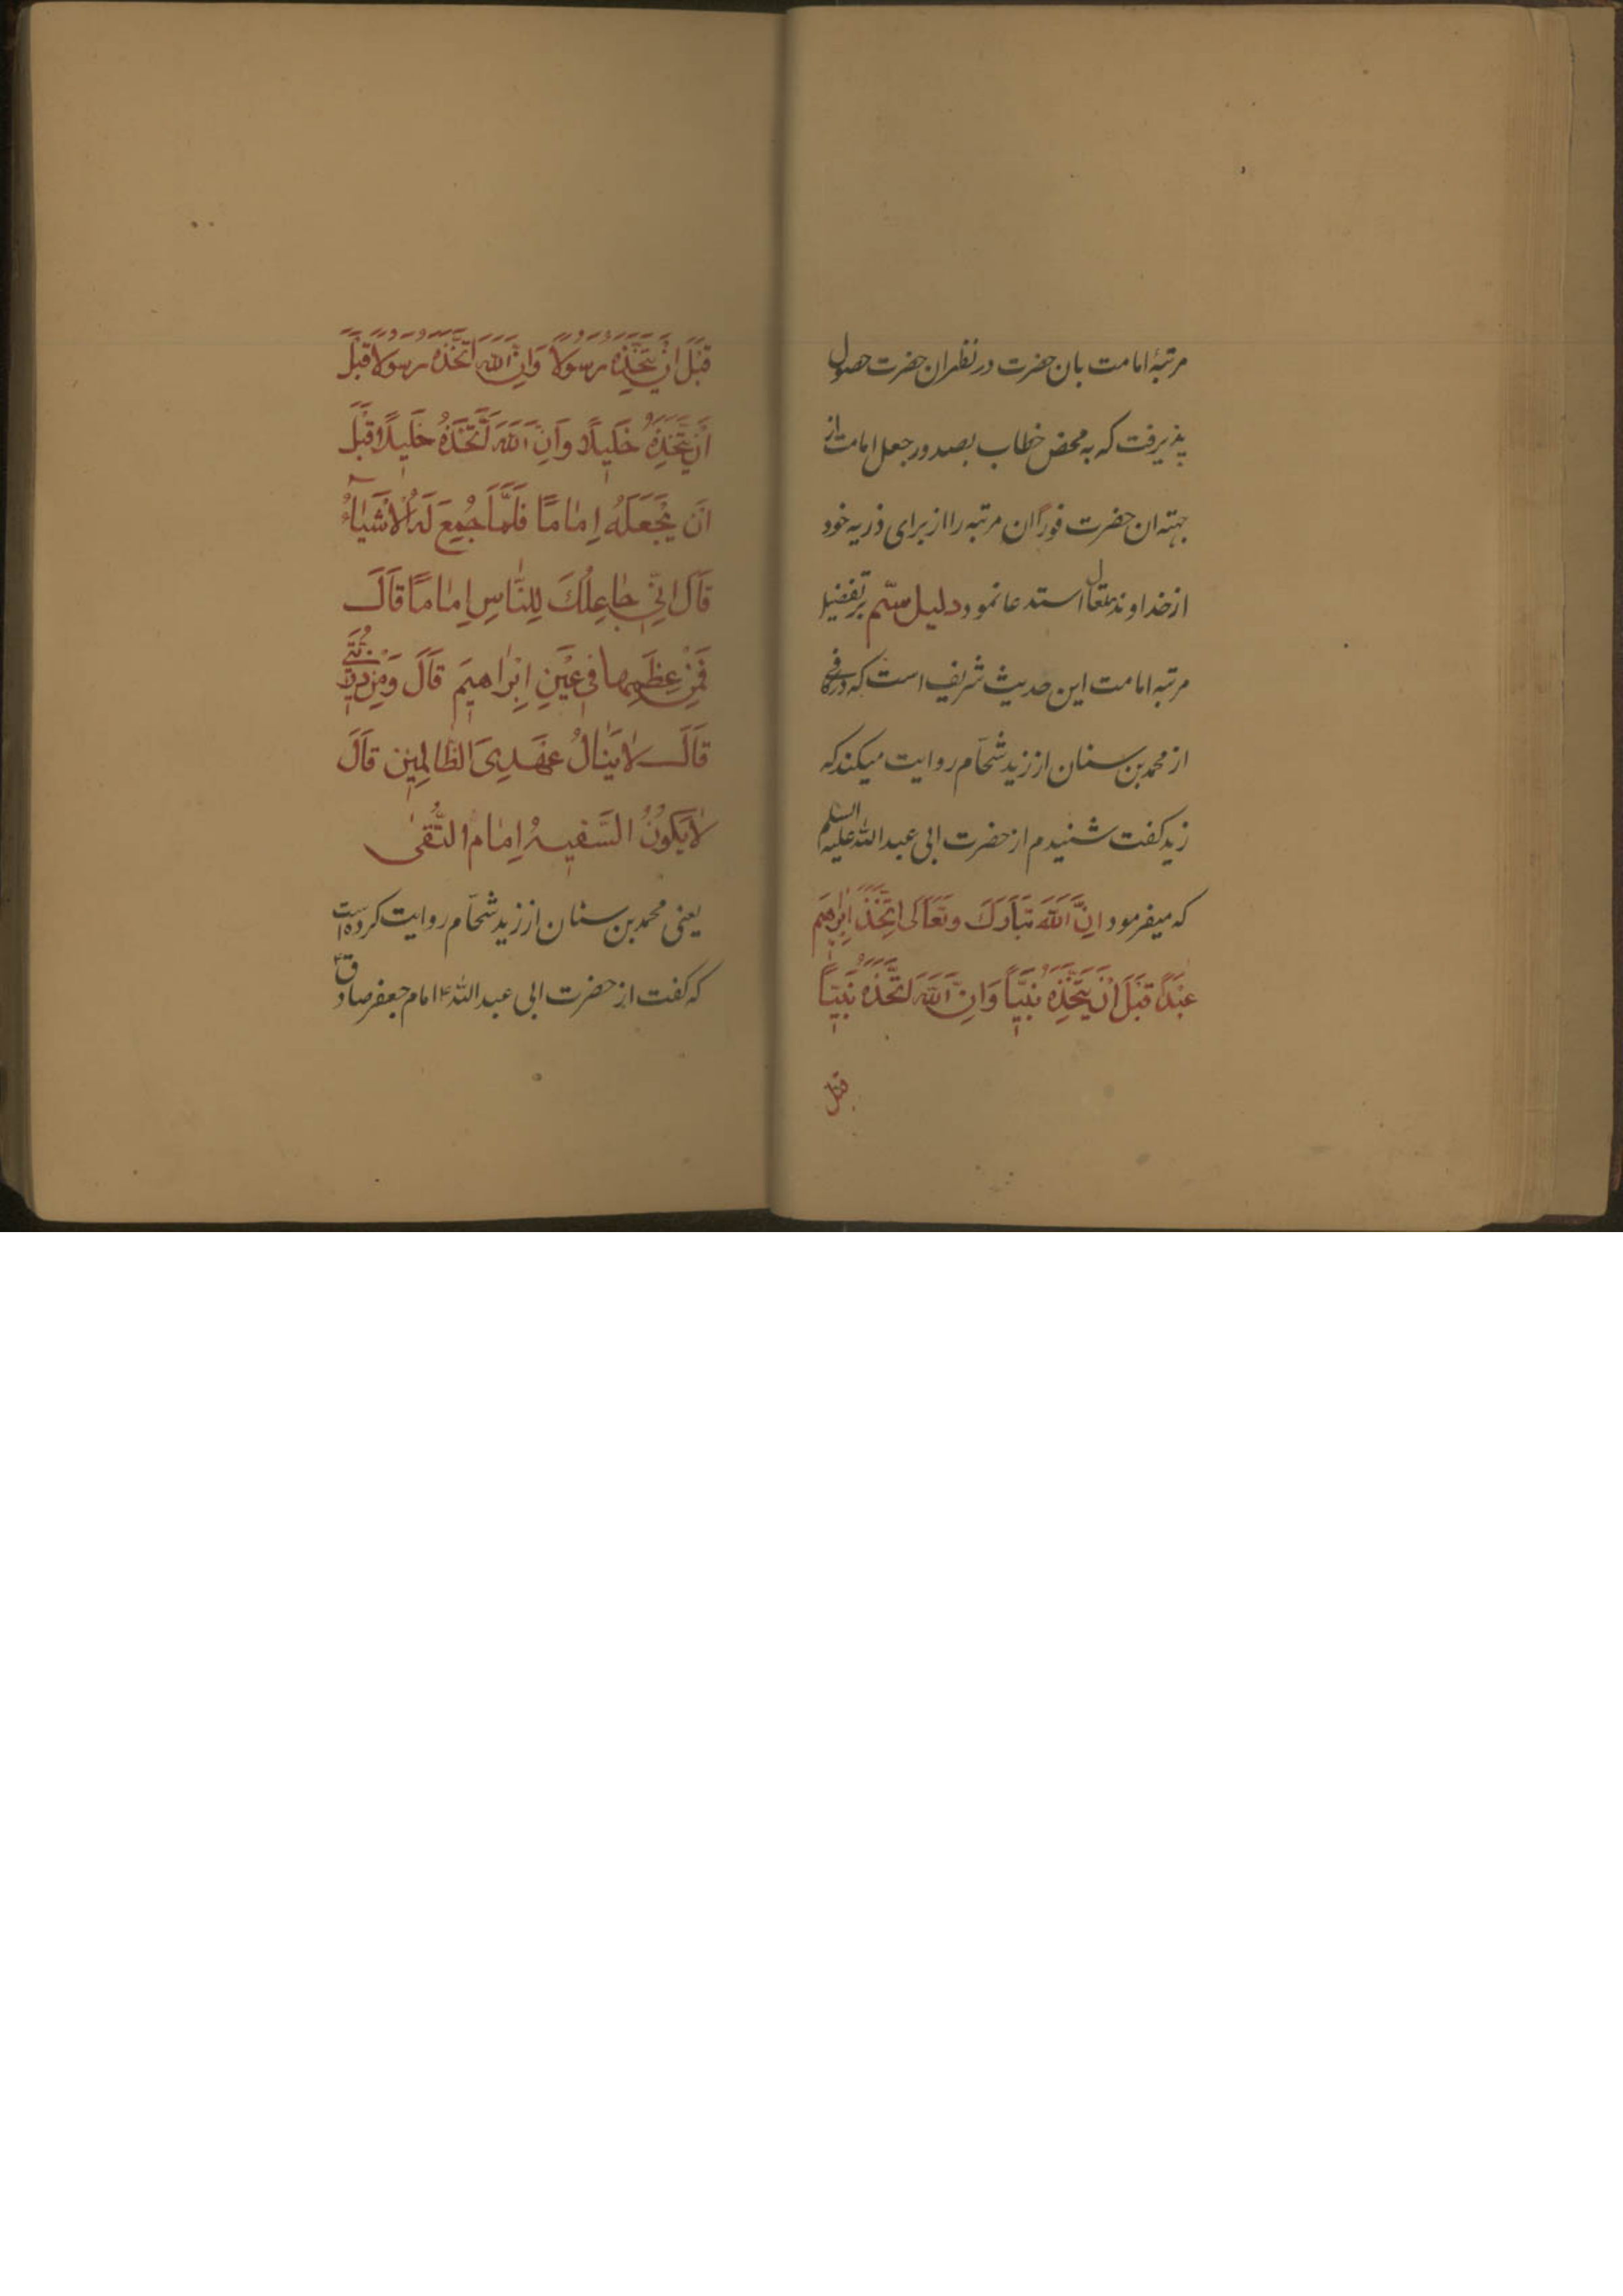 مرتبهٔ امامت بان حضرت در نظر ان حضرت حصول
پذیرفت که به محض خطاب بصدور جعل امامت از
جهته ان حضرت فوراً ان مرتبه را از برای ذریه خود
از خداوند متعال استدعا نمود دلیل سیّم بر تفضیل
مرتبه امامت این حدیث شریف است که در کافی
از محمد بن سنان از زید شحّام روایت میکند که
زید کفت شنیدم از حضرت ابی عبد الله علیه السلم
که میفرمود اِنَّ اللهَ تَبٰارَكَ وَتَعٰالَى اتَّخَذَ اِبْرٰاهیمَ
عَبْداً قَبْلَ اَنْ یَتَّخِذَهُ نَبِیّاً وَاِنَّ اللهَ اتَّخَذَهُ نَبِیّاً
قبل
قَبْلَ اَنْ یَتَّخِذَهُ رَسُولاً وَاِنَّ اللهَ اتَّخَذَهُ رَسُولاً قَبْلَ
اَنْ یَتَّخِذَهُ خَلیلاً وَاِنَّ اللهَ اتَّخَذَهُ خَلیلاً قَبْلَ
اَنْ یَجْعَلَهُ اِمٰامًا فَلَمّٰا جُمِعَ لَهُ الْاَشْیٰآءُ
قٰالَ اِنّی جٰاعِلُكَ لِلنّٰاسِ اِمٰامًا قٰالَ
فَمِنْ عِظَمِهٰا فی عَیْنِ اِبْرٰاهیمَ قٰالَ وَمِنْ ذُرِّیَّتی
قٰالَ لٰا یَنٰالُ عَهْدِی الظّٰالِمینَ قٰالَ
لٰا یَکُونُ السَّفیهُ اِمٰامَ التَّقیِّ
یعنی محمد بن سنان از زید شحّام روایت کرده است
که کفت از حضرت ابی عبد الله ع امام جعفر صادق ع